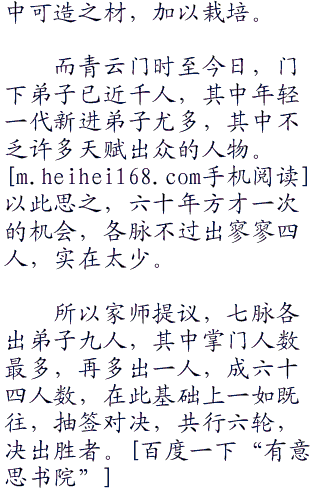 中可造之材，加以栽培。
而青云门时至今日，门
下弟子已近千人，其中年轻
一代新进弟子尤多，其中不
乏许多天赋出众的人物。
[m.heihei168.com手机阅读]
以此思之，六十年方才一次
的机会，各脉不过出寥寥四
人，实在太少。
所以家师提议，七脉各
出弟子九人，其中掌门人数
最多，再多出一人，成六十
四人数，在此基础上一如既
往，抽签对决，共行六轮，
决出胜者。[百度一下“有意
思书院”]